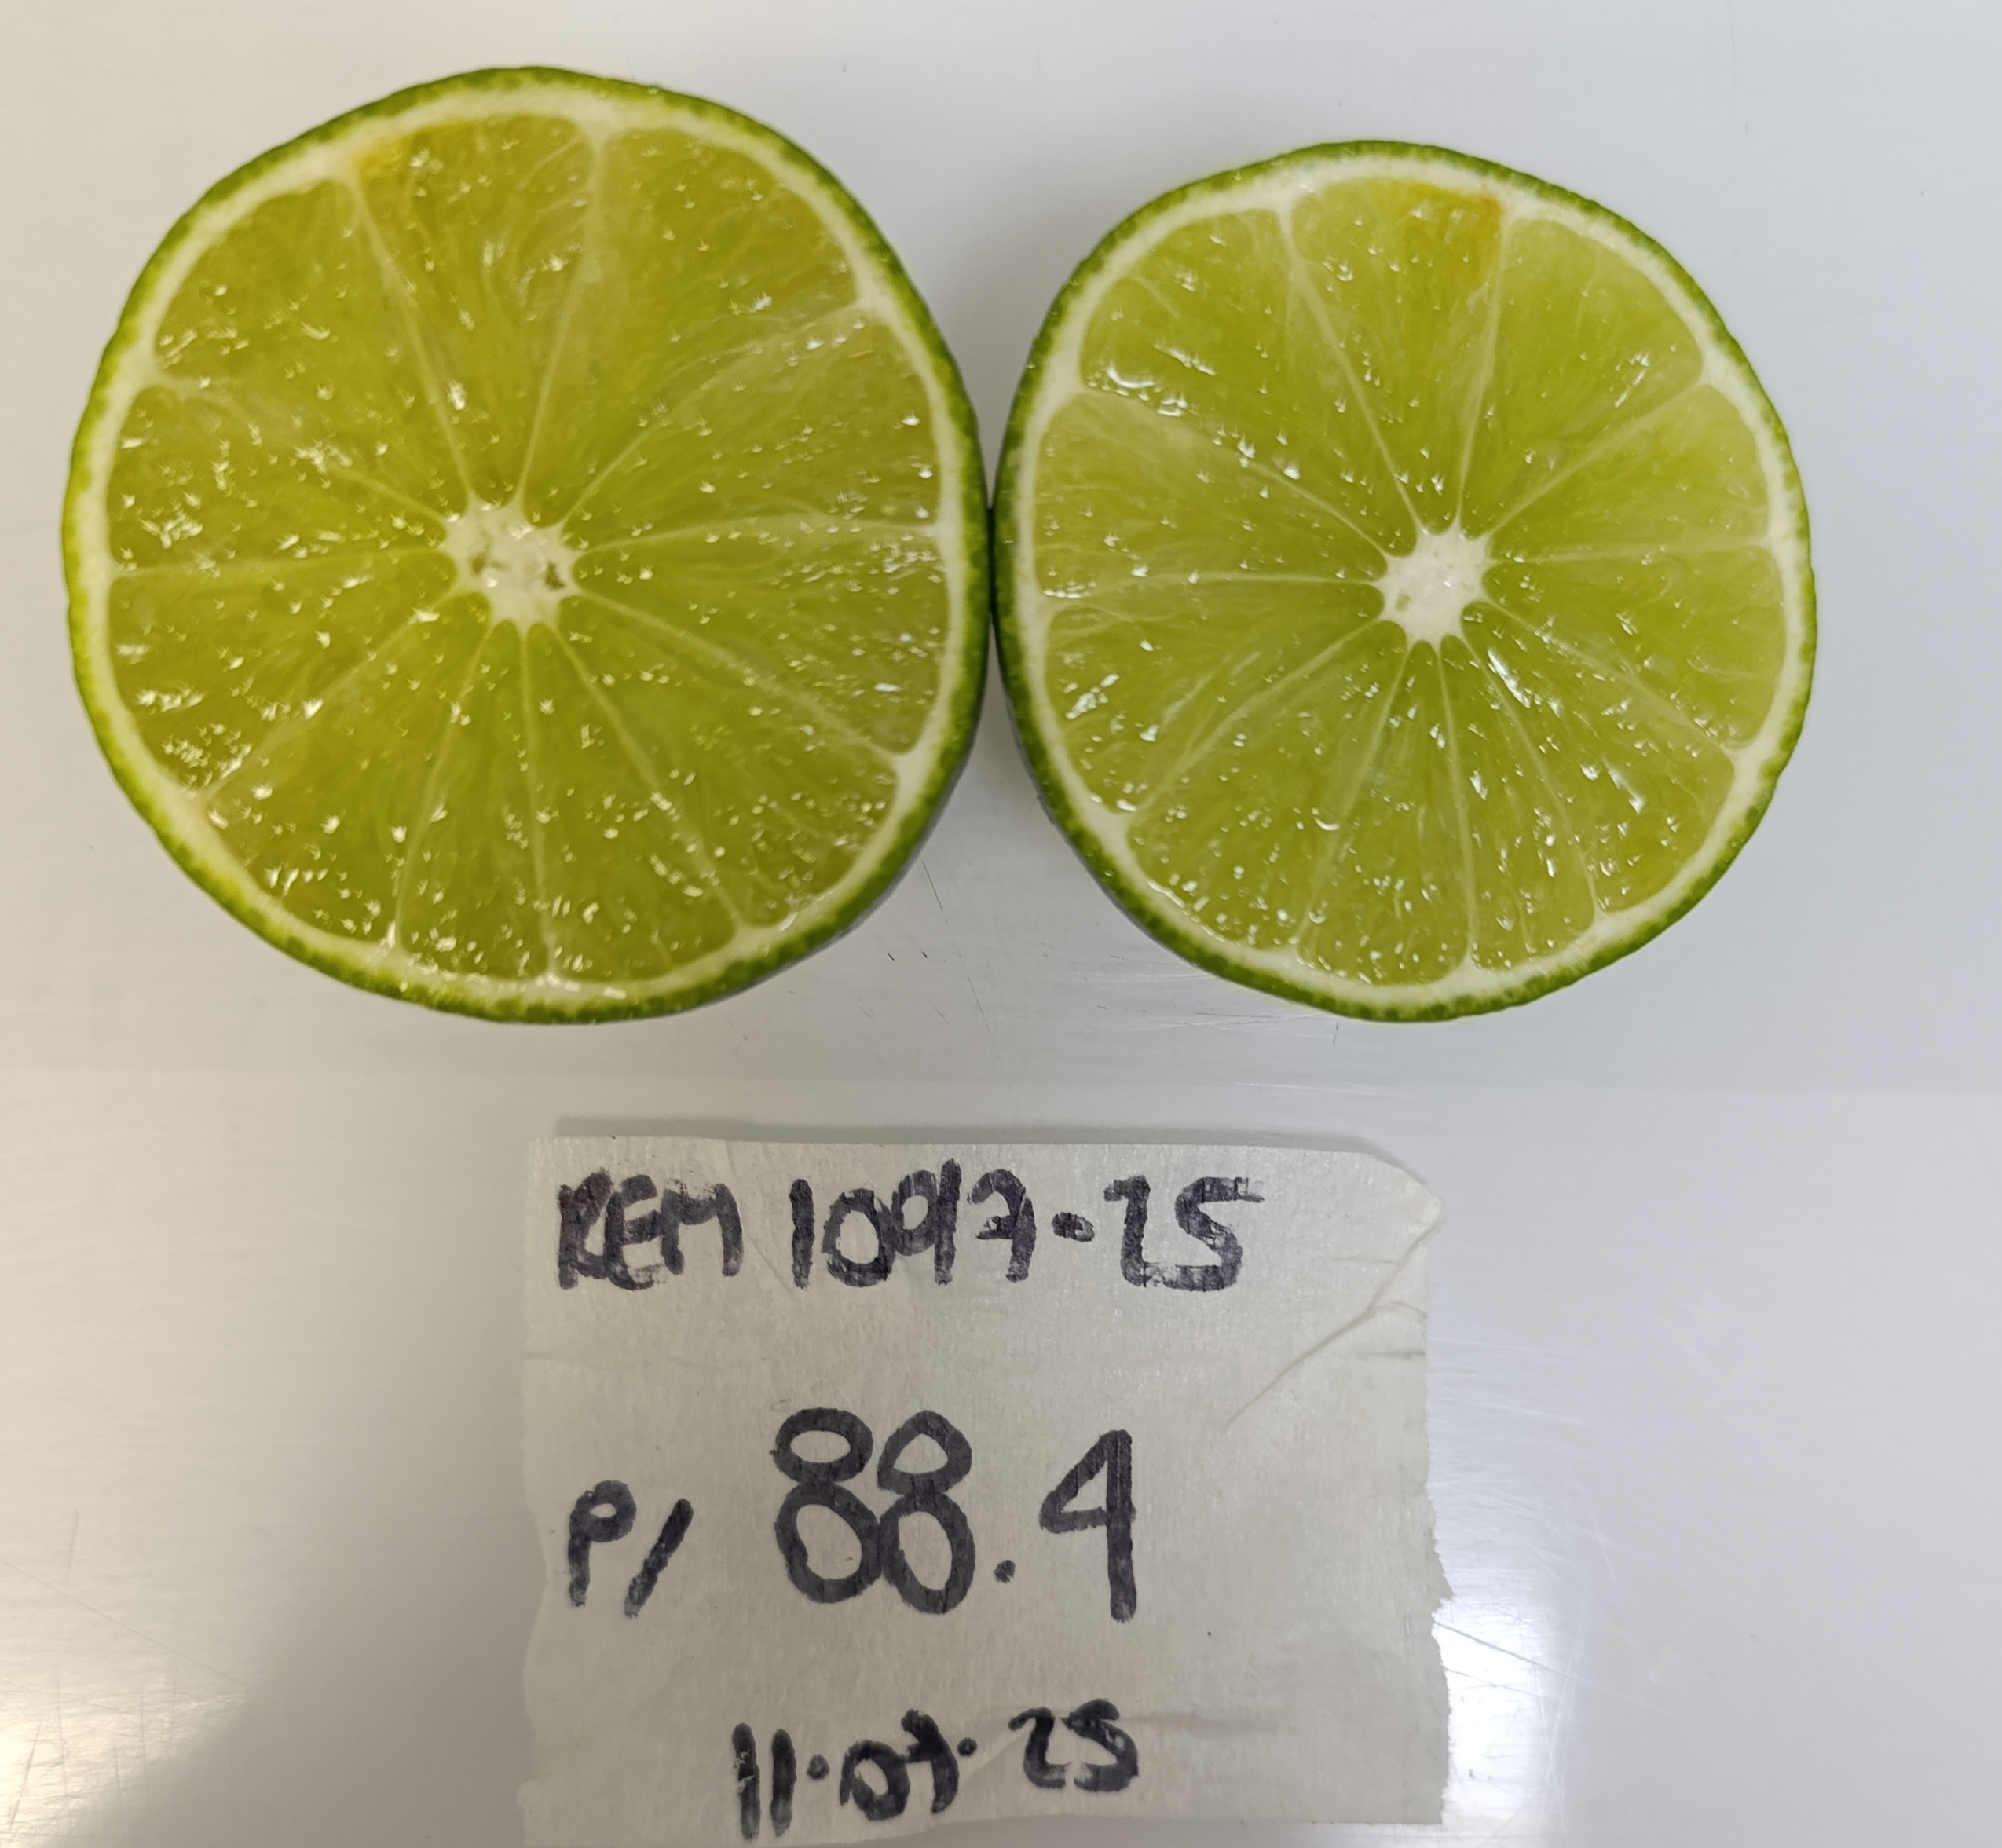 REM 1097-25
P/ 88.4
11·07·25